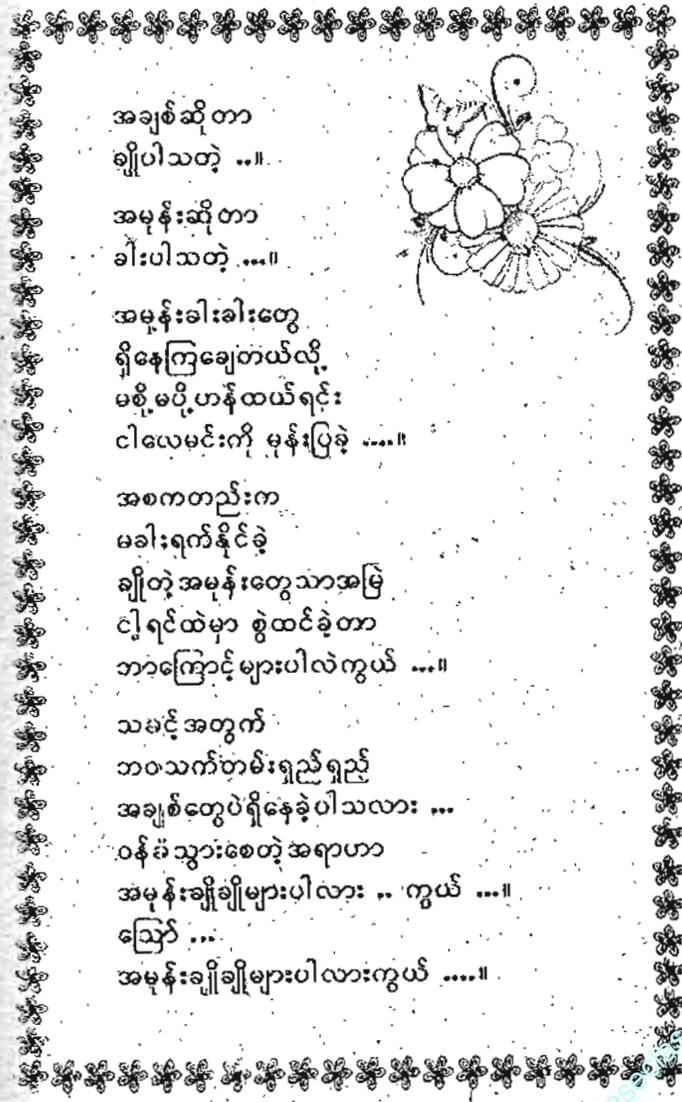 အချစ်ဆိုတာ
ချိုပါသတဲ့ ..။
အမုန်းဆိုတာ
ခါးပါသတဲ့ ...။
အမုန်းခါးခါးတွေ
ရှိနေကြချေတယ်လို့
မစို့မပို့ဟန်ထယ်ရင်း
ငါလေမင်းကို မုန်းပြခဲ့ ....။
အစကတည်းက
မခါးရက်နိုင်ခဲ့
ချိုတဲ့အမုန်းတွေသာအမြဲ
ငါ့ရင်ထဲမှာ စွဲထင်ခဲ့တာ
ဘာကြောင့်များပါလဲကွယ် ...။
သခင့်အတွက်
ဘဝသက်တမ်းရှည်ရှည်
အချစ်တွေပဲရှိနေခဲ့ပါသလား ...
ဝန်ခံသွားစေတဲ့အရာဟာ
အမုန်းချိုချိုများပါလား .. ကွယ် ...။
ဩော် ...
အမုန်းချိုချိုများပါလားကွယ် ....။